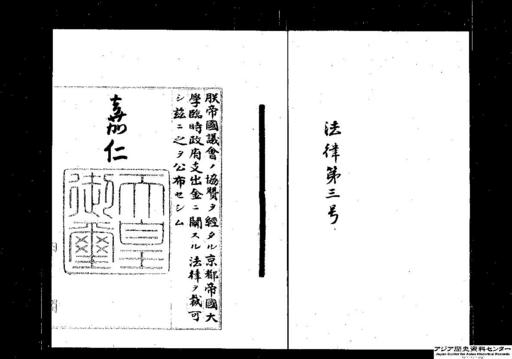 法律第三号
朕帝國議會ノ協贊ヲ經タル京都帝國大
學臨時政府支出金ニ關スル法律ヲ裁可
シ茲ニ之ヲ公布セシム
嘉仁
天皇
御璽
アジア歴史資料センター
Japan Center for Asian Historical Records